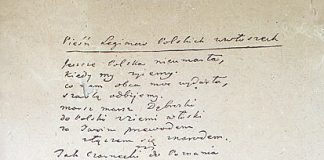 Pieśń Legionow Polskich we włoszech
Jeszcze Polska nieumarła,
kiedy my żyiemy.
co nam obca moc wydarła,
szablą odbiiemy.
marsz marsz Dąbrski
do Polski z ziemi włoski
za Twoim przewodem
złączem się z narodem.
Jak Czarnecki do Poznania